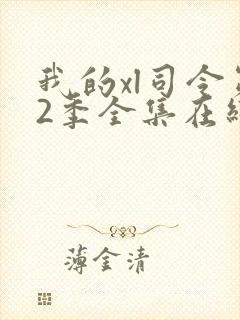 我的xl司令第
2季全集在线
薄金清